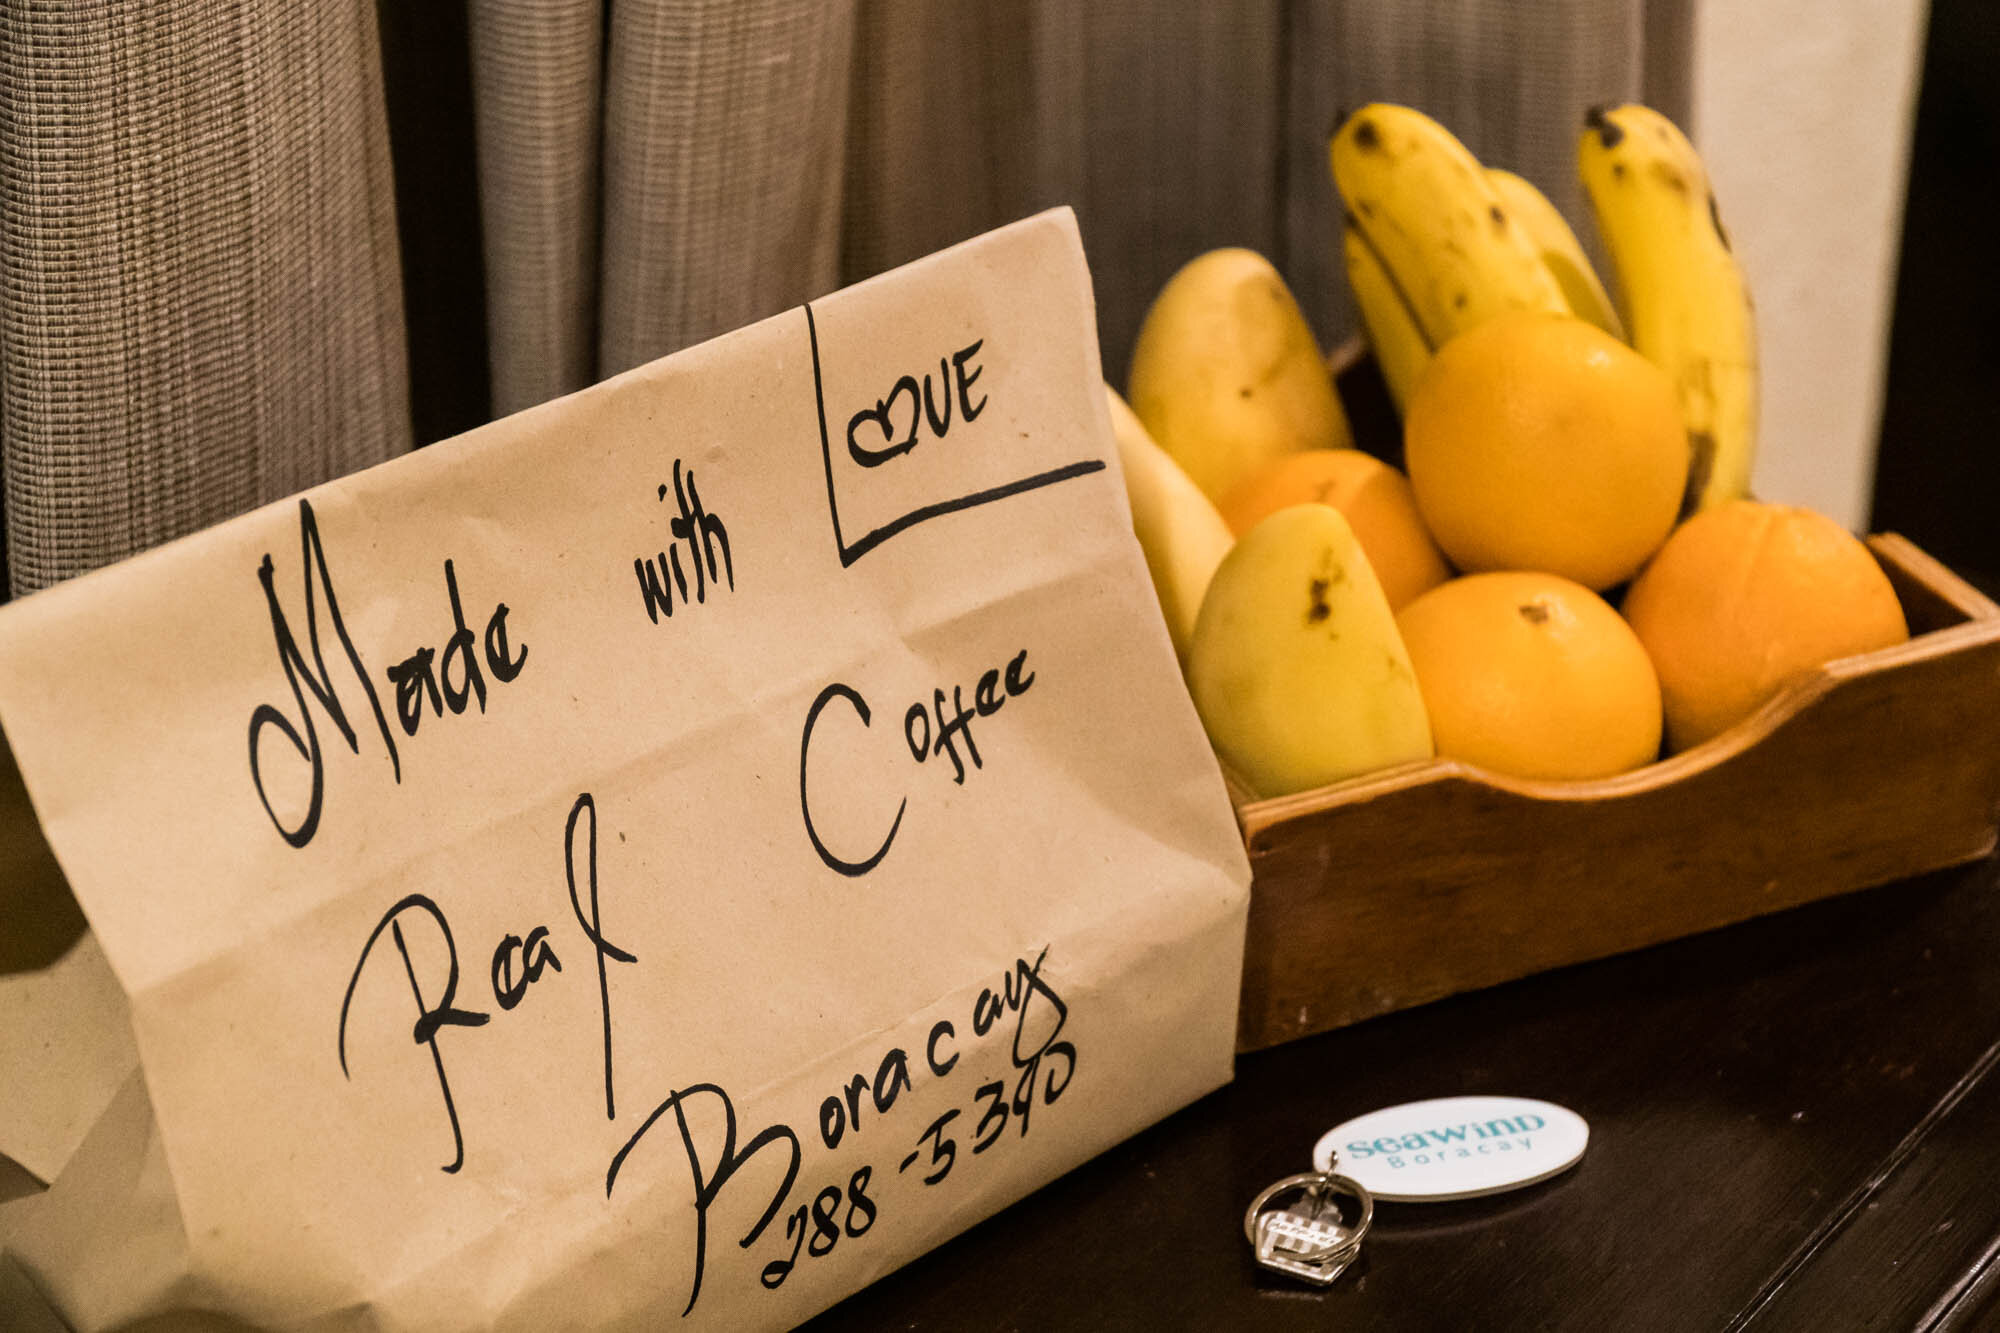 Made with LOVE
Real Coffee
Boracay
288-5340
seawind
Boracay